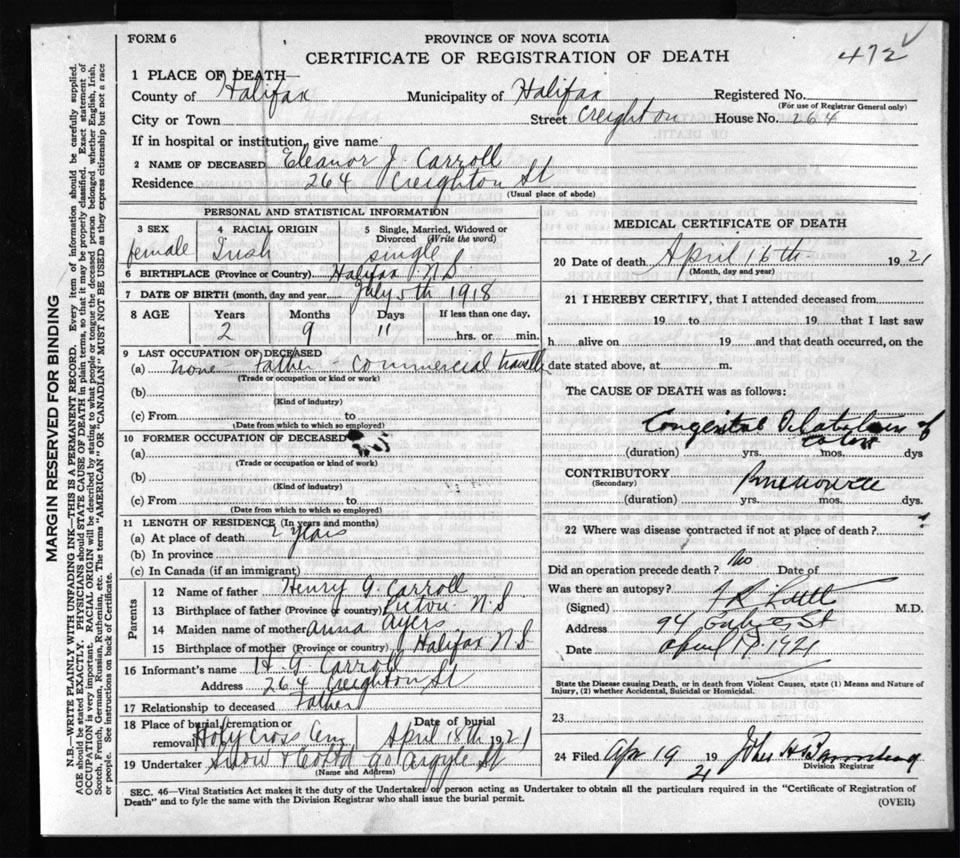 FORM 6
PROVINCE OF NOVA SCOTIA
CERTIFICATE OF REGISTRATION OF DEATH
472
1 PLACE OF DEATH—
County of Halifax Municipality of Halifax Registered No.
(For use of Registrar General only)
City or Town Street Creighton House No. 264
If in hospital or institution, give name
2 NAME OF DECEASED Eleanor J. Carroll
Residence 264 Creighton St
(Usual place of abode)
PERSONAL AND STATISTICAL INFORMATION
3 SEX 4 RACIAL ORIGIN 5 Single, Married, Widowed or Divorced (Write the word)
female Irish single
6 BIRTHPLACE (Province or Country) Halifax N.S
7 DATE OF BIRTH (month, day and year July 5th 1918
8 AGE Years Months Days If less than one day,
2 9 11 hrs. or min.
9 LAST OCCUPATION OF DECEASED
(a) none Father - Commercial traveller
(Trade or occupation or kind or work)
(b)
(Kind of industry)
(c) From to
(Date from which to which so employed)
10 FORMER OCCUPATION OF DECEASED
(a)
(Trade or occupation or kind or work)
(b)
(Kind of industry)
(c) From to
(Date from which to which so employed)
11 LENGTH OF RESIDENCE (In years and months)
(a) At place of death 2 years
(b) In province
(c) In Canada (if an immigrant)
Parents
12 Name of father Henry G. Carroll
13 Birthplace of father (Province or country) Pictou N.S
14 Maiden name of mother Anna Ayers
15 Birthplace of mother (Province or country) Halifax N.S
16 Informant's name H. G. Carroll
Address 264 Creighton St
17 Relationship to deceased Father
18 Place of burial, cremation or removal Holy Cross Cem Date of burial April 18th 1921
19 Undertaker Snow & Co Ltd 90 Argyle St
(Name and Address)
MEDICAL CERTIFICATE OF DEATH
20 Date of death April 16th 1921
(Month, day and year)
21 I HEREBY CERTIFY, that I attended deceased from
19 to 19 that I last saw
h alive on 19 and that death occurred, on the
date stated above, at m.
The CAUSE OF DEATH was as follows:
Congenital Dilatation of
(duration) yrs. mos. dys
CONTRIBUTORY
(Secondary)
(duration) yrs. mos. dys.
22 Where was disease contracted if not at place of death?
Did an operation precede death? No Date of
Was there an autopsy?
(Signed) M.D.
Address 94 St
Date April 17, 1921
State the Disease causing Death, or in death from Violent Causes, state (1) Means and Nature of
Injury, (2) whether Accidental, Suicidal or Homicidal.
23
24 Filed Apr 19 1921 John H
Division Registrar
SEC. 46—Vital Statistics Act makes it the duty of the Undertaker or person acting as Undertaker to obtain all the particulars required in the "Certificate of Registration of
Death" and to fyle the same with the Division Registrar who shall issue the burial permit.
(OVER)
MARGIN RESERVED FOR BINDING
N.B.—WRITE PLAINLY WITH UNFADING INK—THIS IS A PERMANENT RECORD. Every item of information should be carefully supplied.
AGE should be stated EXACTLY. PHYSICIANS should STATE CAUSE OF DEATH in plain terms, so that it may be properly classified. Exact statement of
OCCUPATION is very important. RACIAL ORIGIN will be described by stating to what people or tongue the deceased person belonged whether English, Irish,
Scotch, French, German, Russian, Ruthenian, etc. The terms "AMERICAN" OR "CANADIAN" MUST NOT BE USED as they express citizenship but not a race
or people. See instructions on back of Certificate.